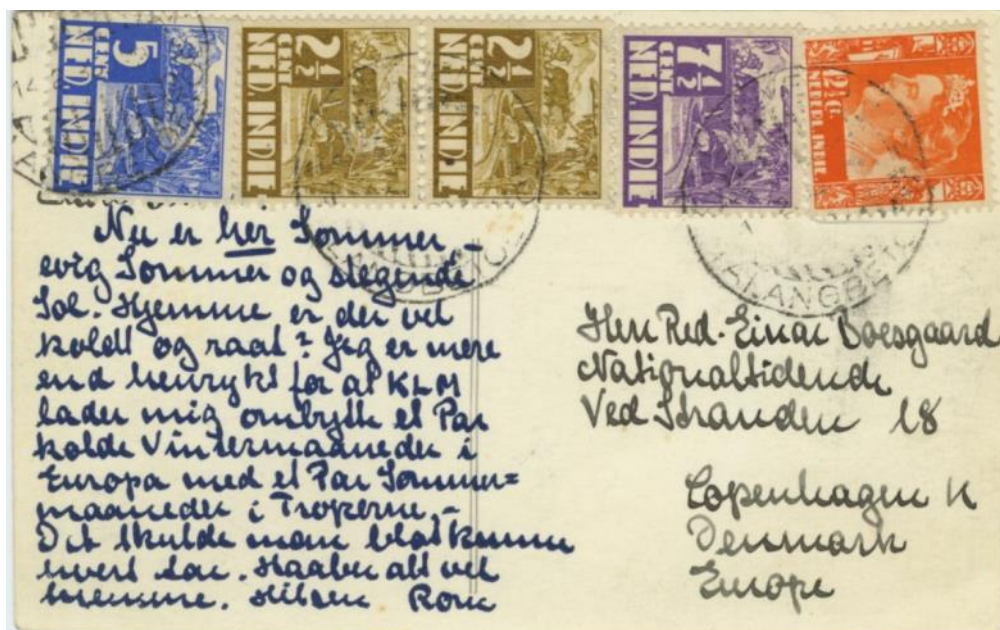 5
CENT
NED. INDIE
2½
CENT
NED. INDIE
2½
CENT
NED. INDIE
7½
CENT
NED. INDIE
12½ Ct.
NEDERL. INDIE
Nu er her Sommer –
evig Sommer og stegende
Sol. Hjemme er der vel
koldt og raat? Jeg er mere
end henrykt for at KLM
lader mig ombytte et Par
kolde Vintermaaneder i
Europa med et Par Sommer=
maaneder i Troperne. –
Det skulde man blot kunne
hvert Aar. Haaber alt vel
hjemme. Hilsen
Herr Red. Einar Boesgaard
Nationaltidende
Ved Stranden 18
Copenhagen K
Denmark
Europe